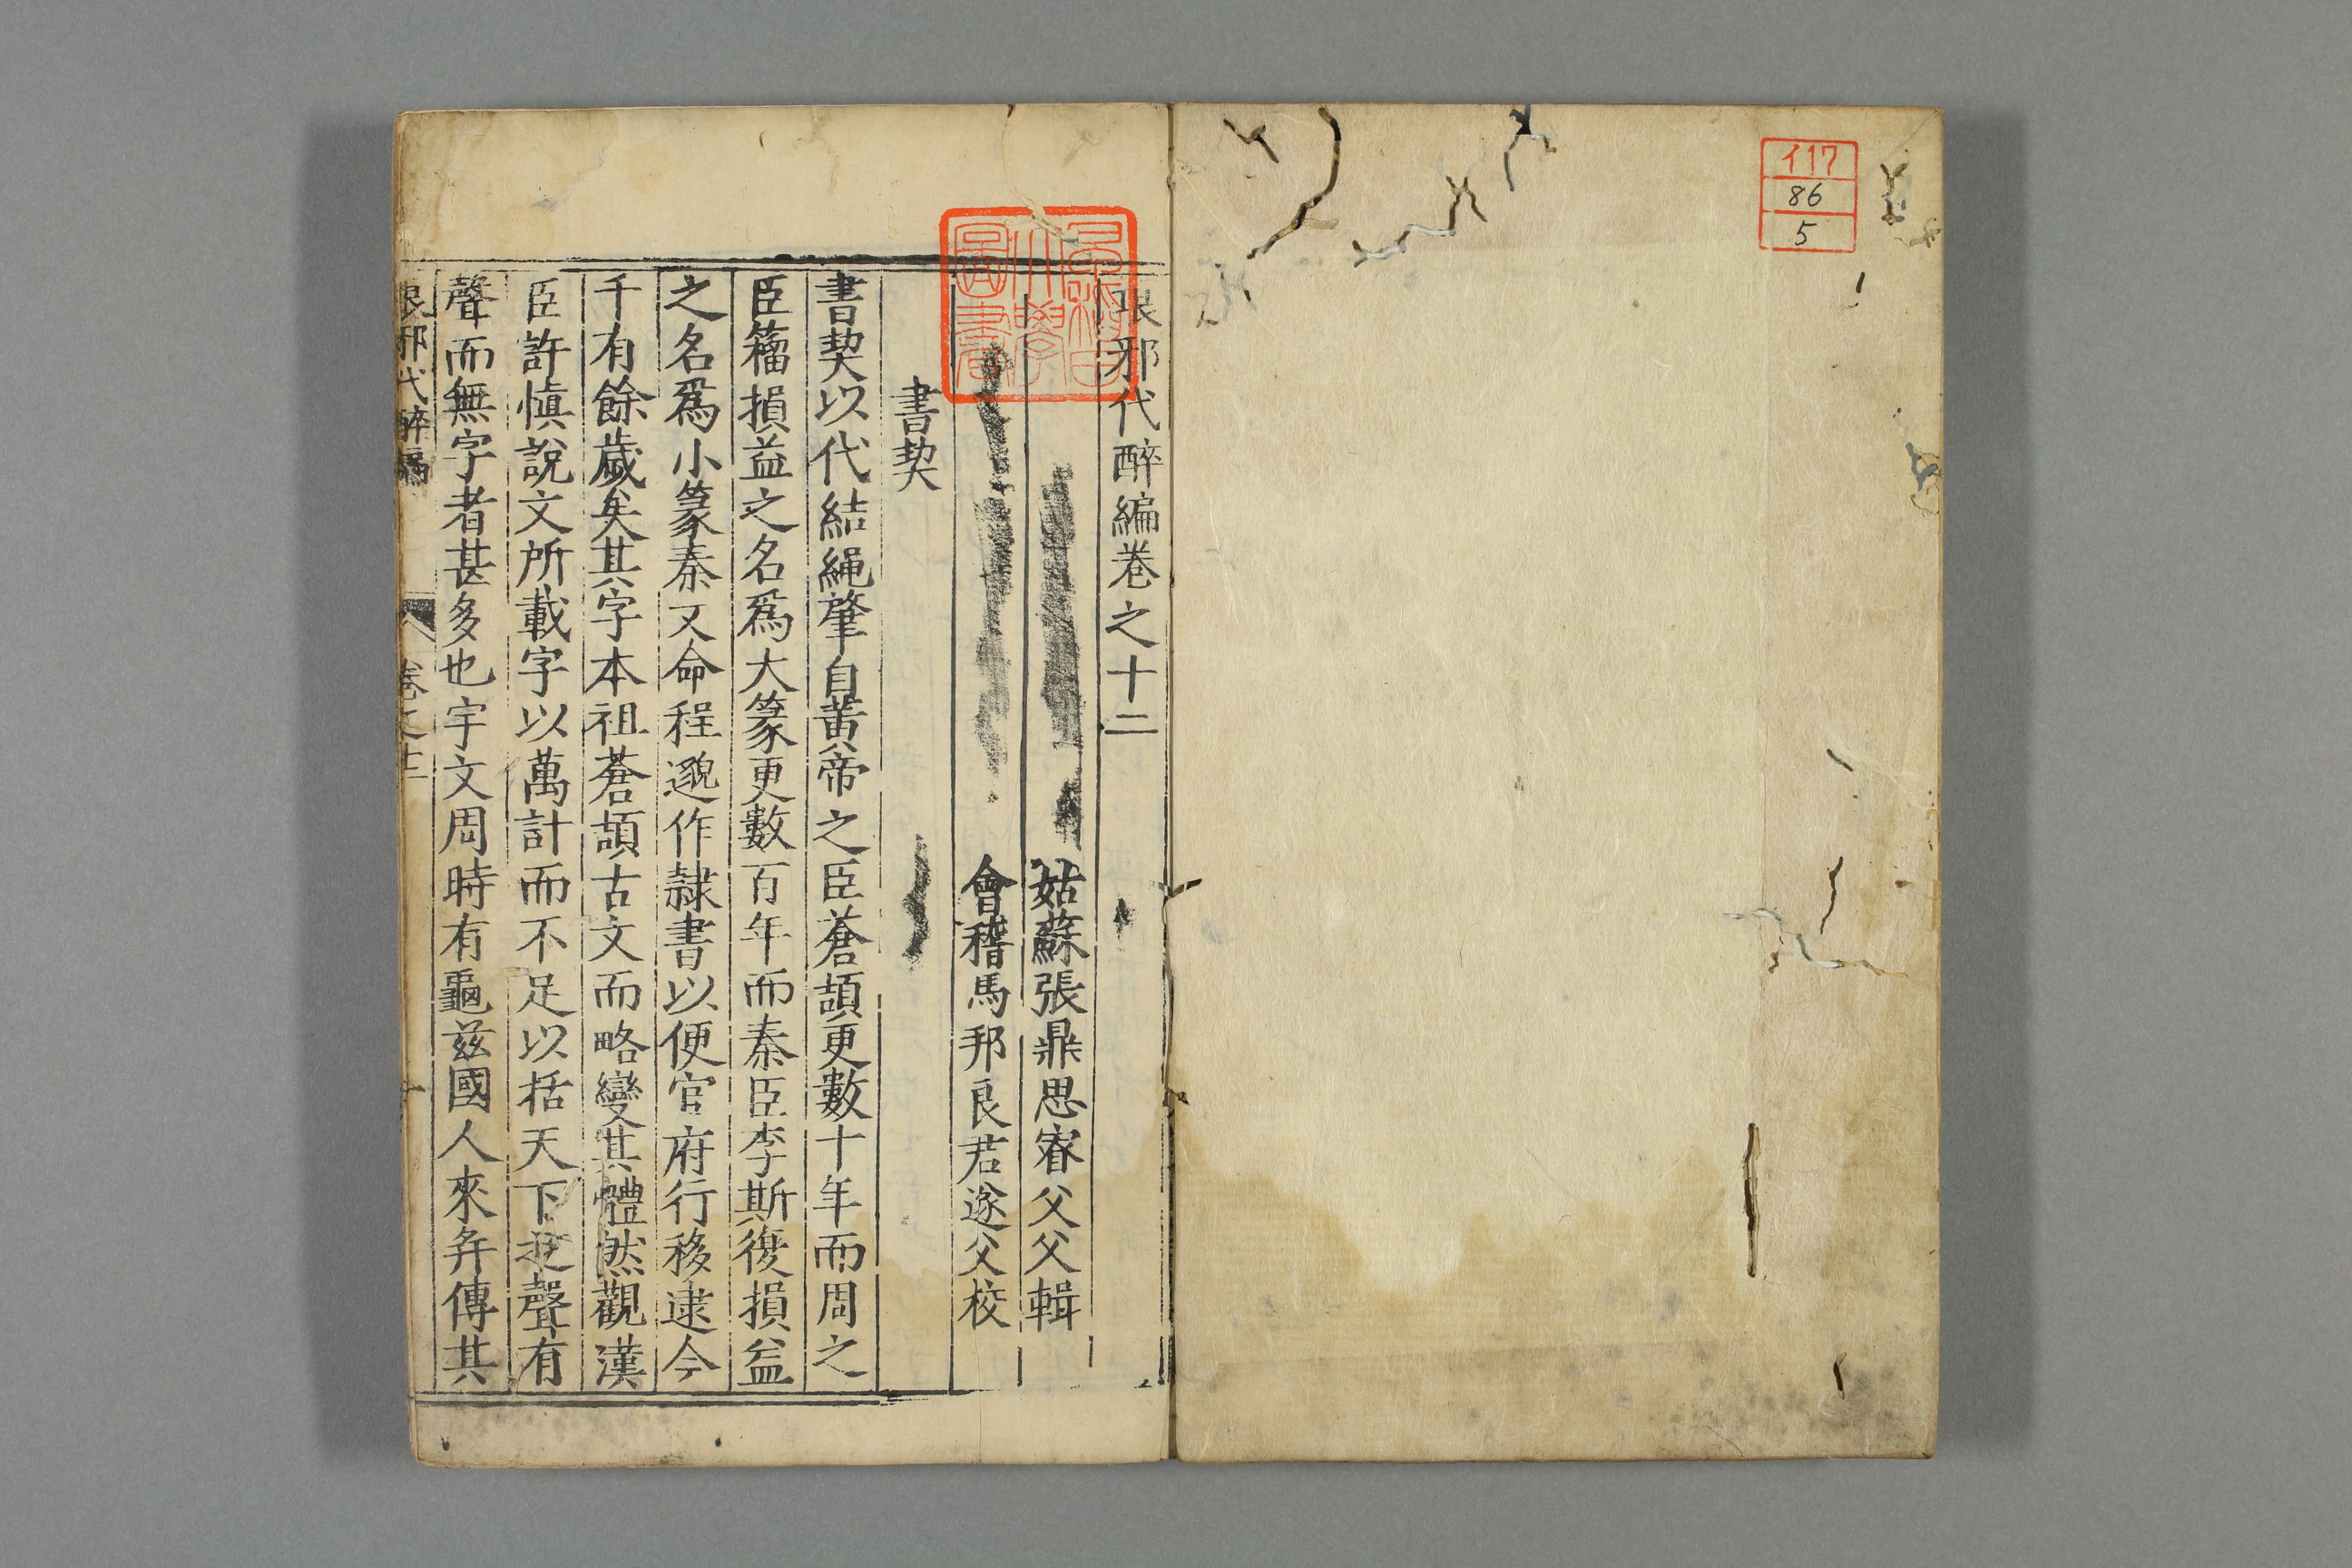 イ17
86
5
琅邪代醉編卷之十二
姑蘇張鼎思睿父父輯
會稽馬邦良君遂父校
書契
書契以代結繩肇自黃帝之臣蒼頡更數十年而周之
臣籀損益之名爲大篆更數百年而秦臣李斯復損益
之名爲小篆秦又命程邈作隷書以便官府行移逮今
千有餘歲矣其字本祖蒼頡古文而略變其體然觀漢
臣許愼說文所載字以萬計而不足以括天下之聲有
聲而無字者甚多也宇文周時有龜兹國人來弁傳其
琅邪代醉編 卷之十二 一